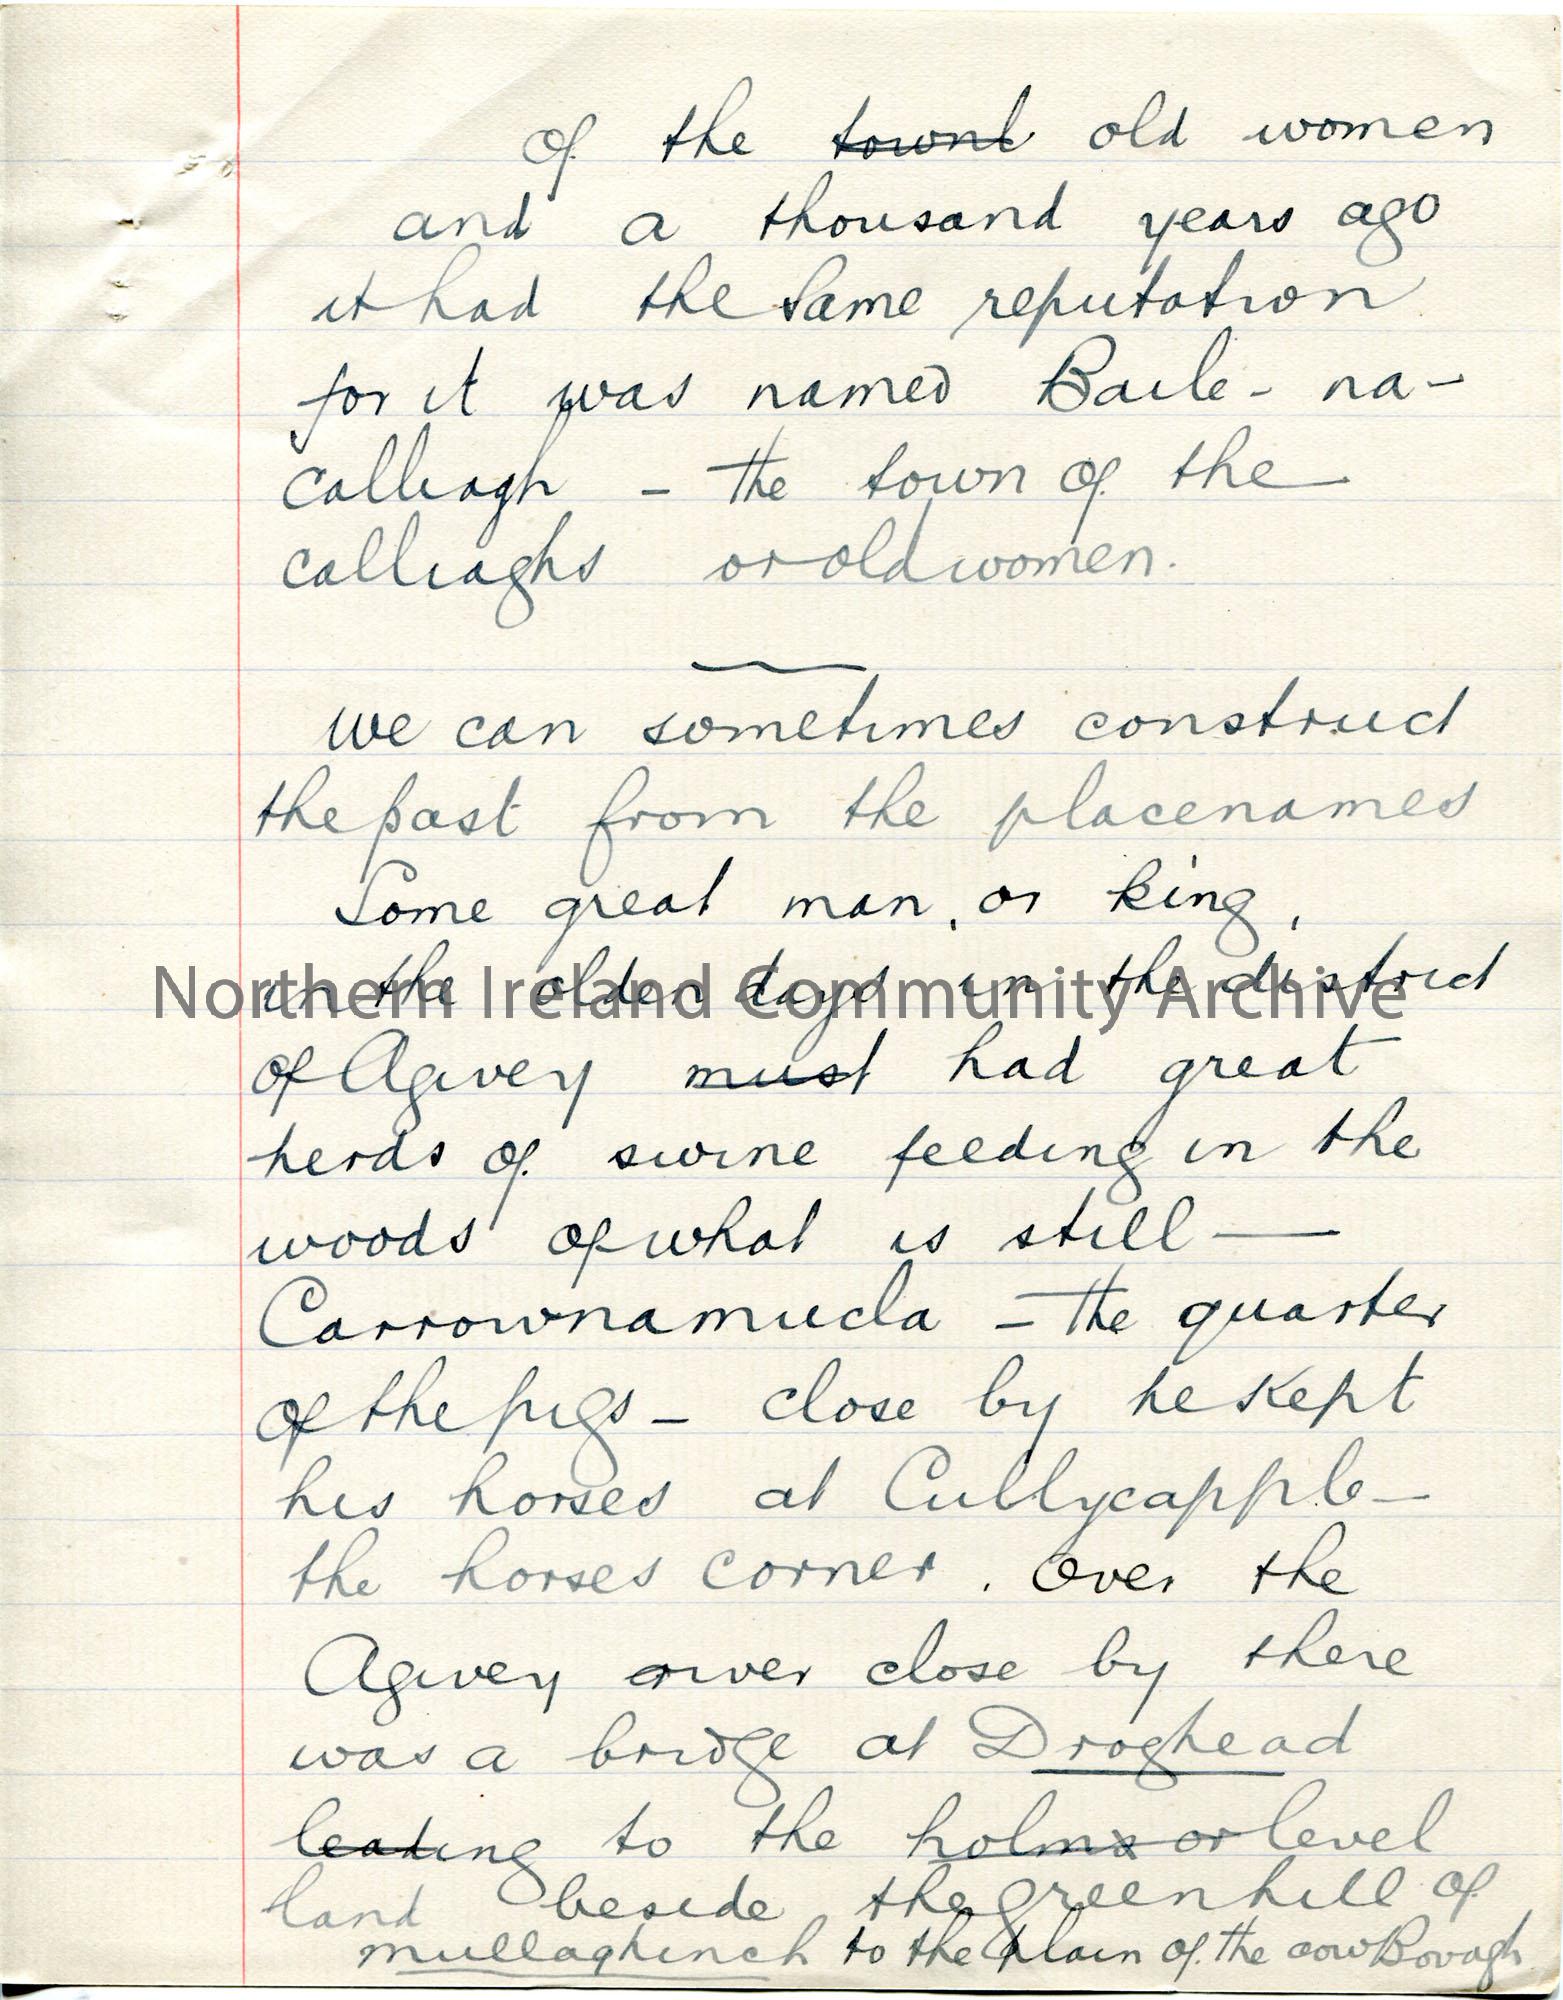 of the townl old women
and a thousand years ago
it had the same reputation
for it was named Baile - na -
calliagh - the town of the
calliaghs or old women.
we can sometimes construct
the past from the placenames
Some great man, or king,
in the olden days in the district
of Agivey must had great
herds of swine feeding in the
woods of what is still —
Carrownamucla - the quarter
of the pigs - close by he kept
his horses at Cullycapple -
the horses corner. Over the
Agivey river close by there
was a bridge at Droghead
leading to the holms or level
land beside the green hill of
mullaghinch to the plain of the cow Bovagh
Northern Ireland Community Archive